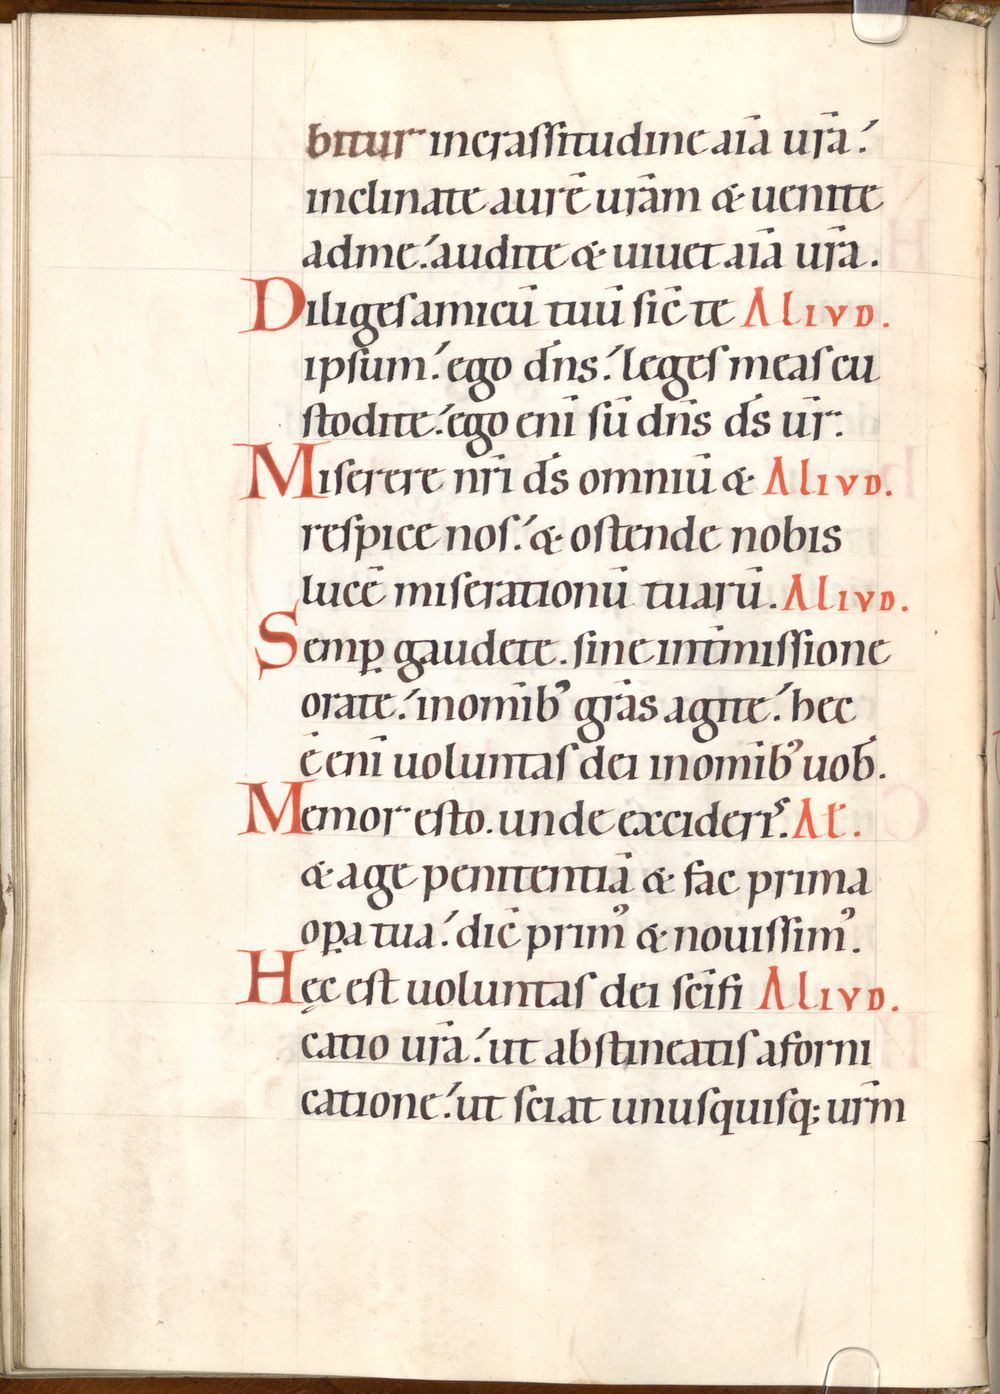 bitur incrassitudine aīa ur̄a:
inclinate aurē ur̄am & uenite
adme: audite & uiuet aīa ur̄a.
Diliges amicū tuū sic̄ te Aliud.
ipsum: ego dn̄s: leges meas cu
stodite: ego eni̅ sū dn̄s ds̄ ur̄:
Miserere nr̄i ds̄ omniū & Aliud.
respice nos: & ostende nobis
lucē miserationū tuarū. Aliud.
Semꝑ gaudete. sine int̄missione
orate: inomīb᾽ gr̄as agite: hec
ē enī uoluntas dei inomīb᾽ uob̄.
Memor esto. unde excideris. Al̄.
& age penitentiā & fac prima
oꝑa tua: dic̄ prim᾽ & nouissim᾽.
Hęc est uoluntas dei sc̄ifi Aliud.
catio ur̄a: ut abstineatis aforni
catione: ut sciat unusquisq; ur̄m